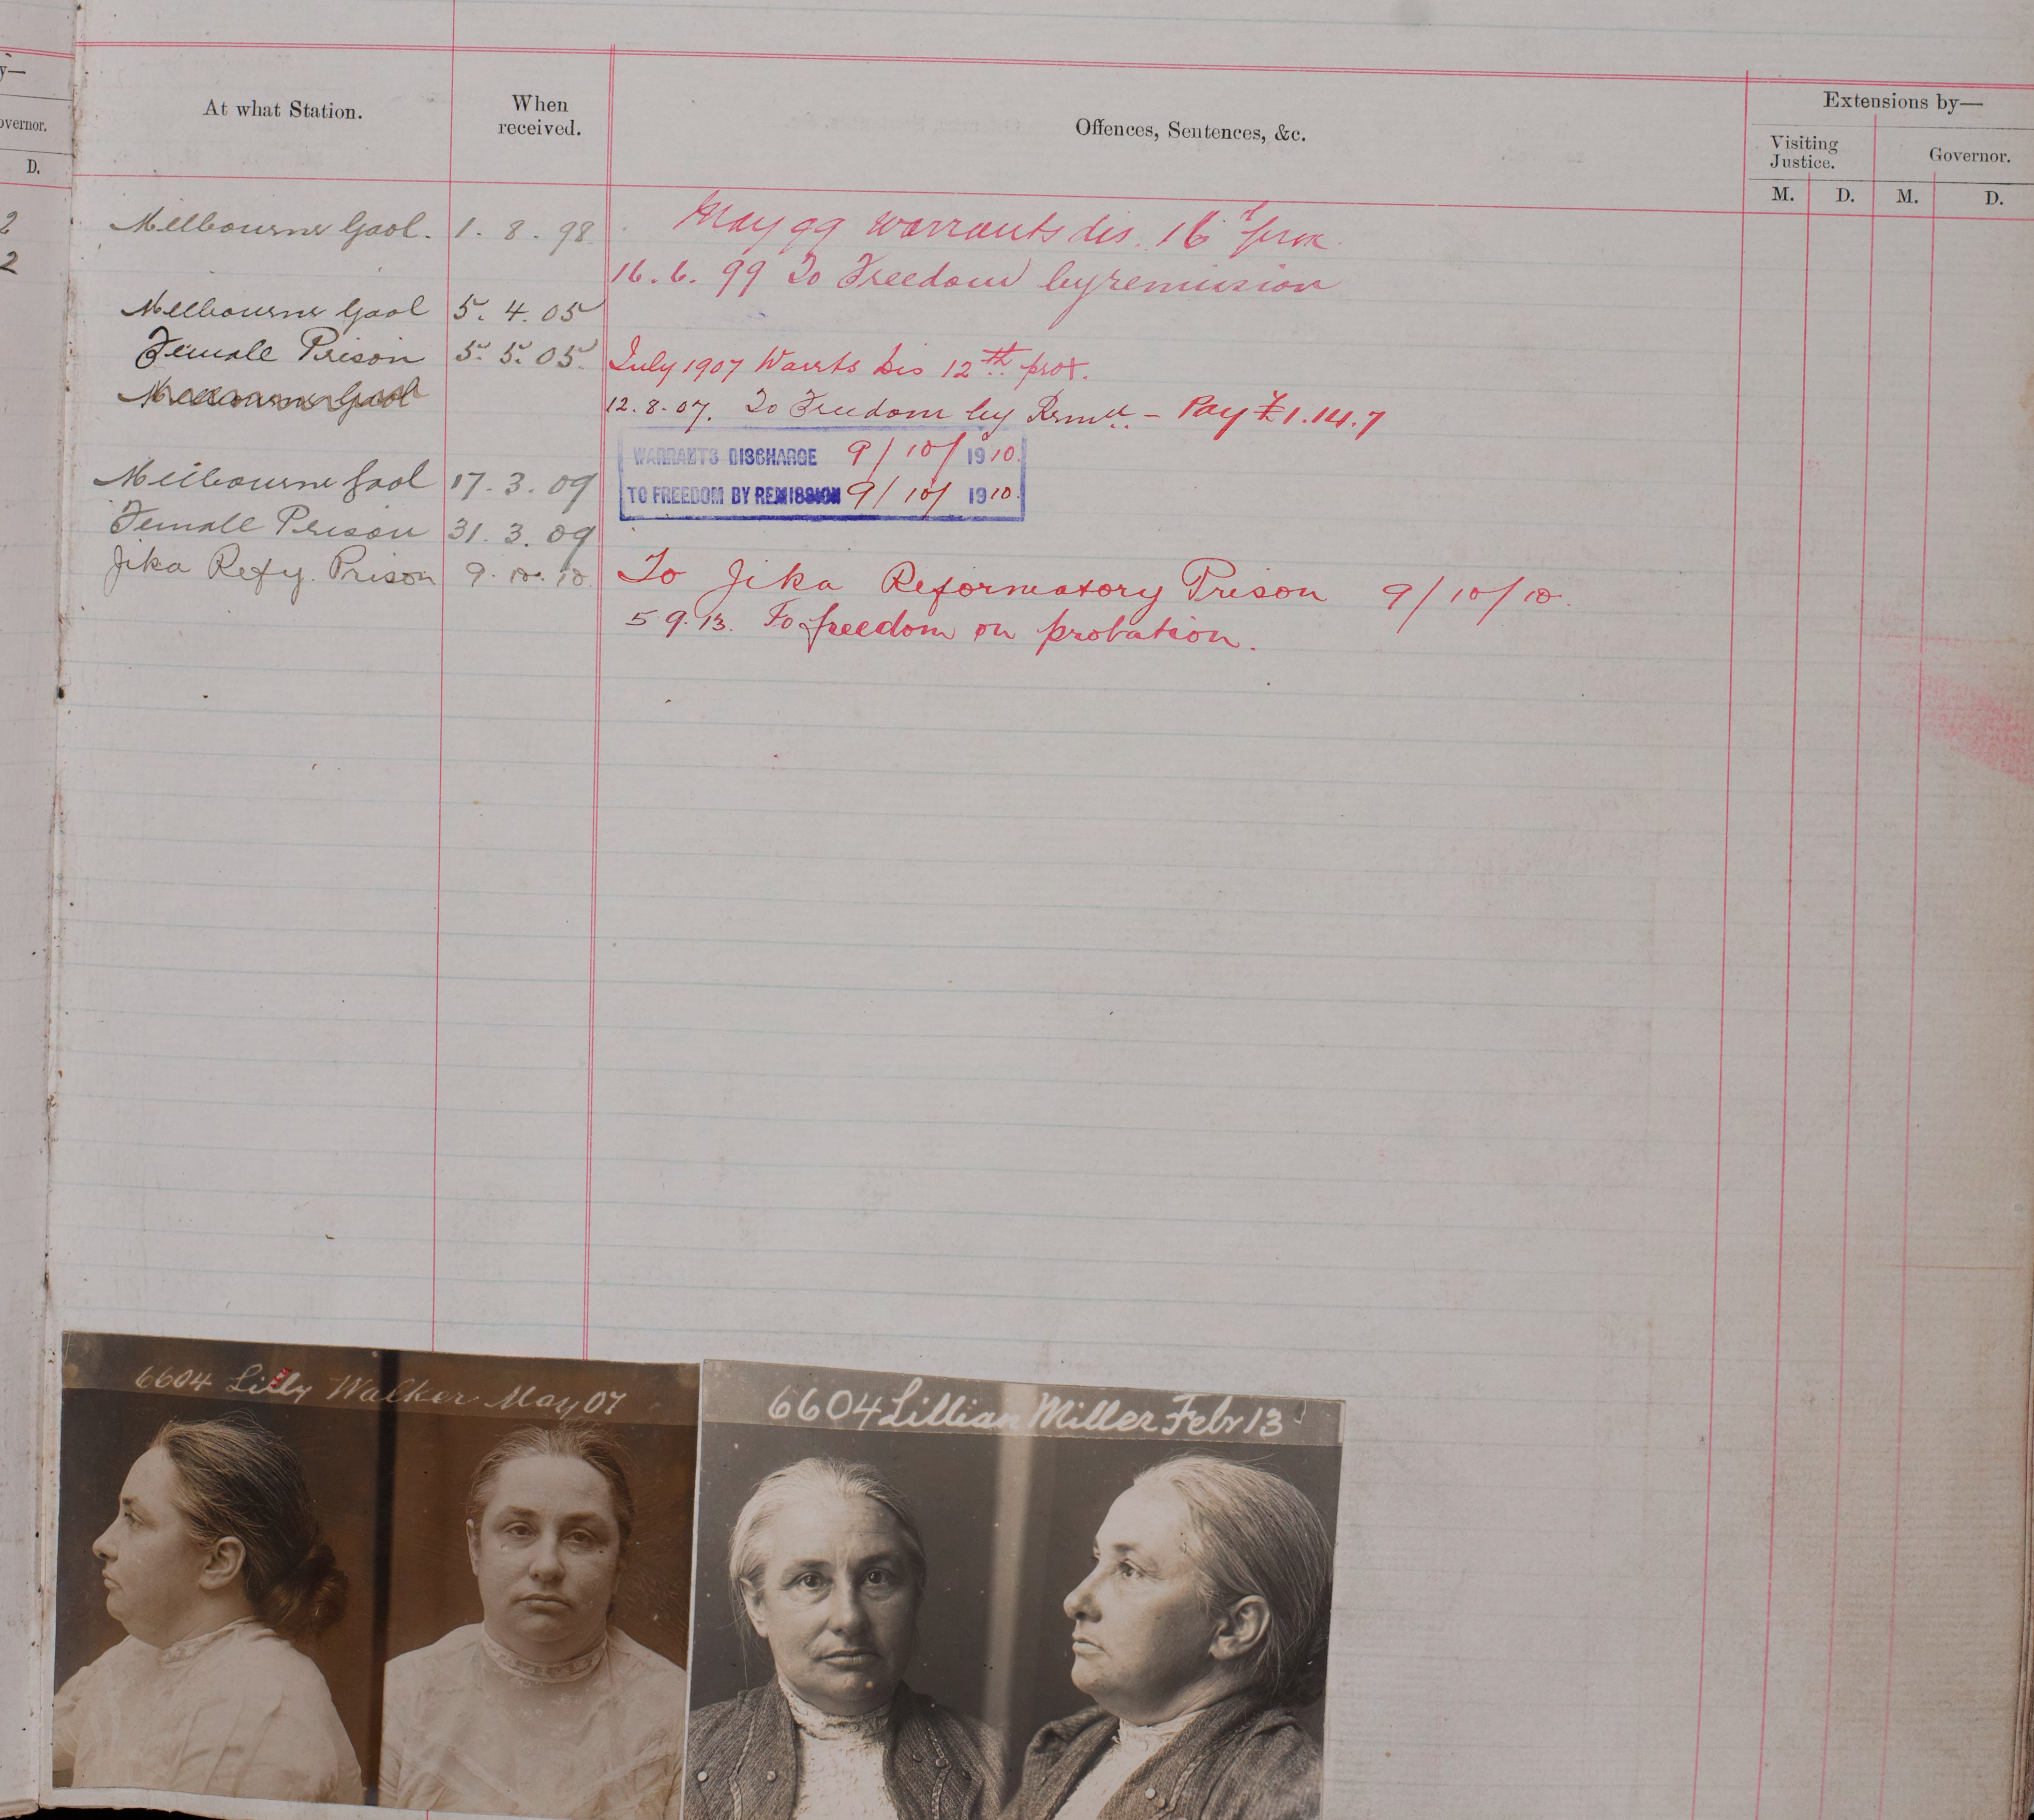 y—
overnor.
D.
2
2
At what Station.
When
received.
Offences, Sentences, &c.
Extensions by—
Visiting
Justice.
Governor.
M. D. M. D.
Melbourne Gaol. 1. 8. 98
May 99 Warrants dis. 16th prox.
16. 6. 99 To Freedom by remission
Melbourne Gaol 5. 4. 05
Female Prison 5. 5. 05. July 1907 Warrts Dis 12th prox.
Melbourne Gaol
12. 8. 07. To Freedom by Remn — Pay £1.14.7
WARRANTS DISCHARGE 9/10/1910.
Melbourne Gaol 17. 3. 09
TO FREEDOM BY REMISSION 9/10/1910.
Female Prison 31. 3. 09
Jika Refy. Prison 9. 10. 10. To Jika Reformatory Prison 9/10/10.
5 9. 13. To freedom on probation.
6604 Lilly Walker May 07
6604 Lillian Miller Febr 13